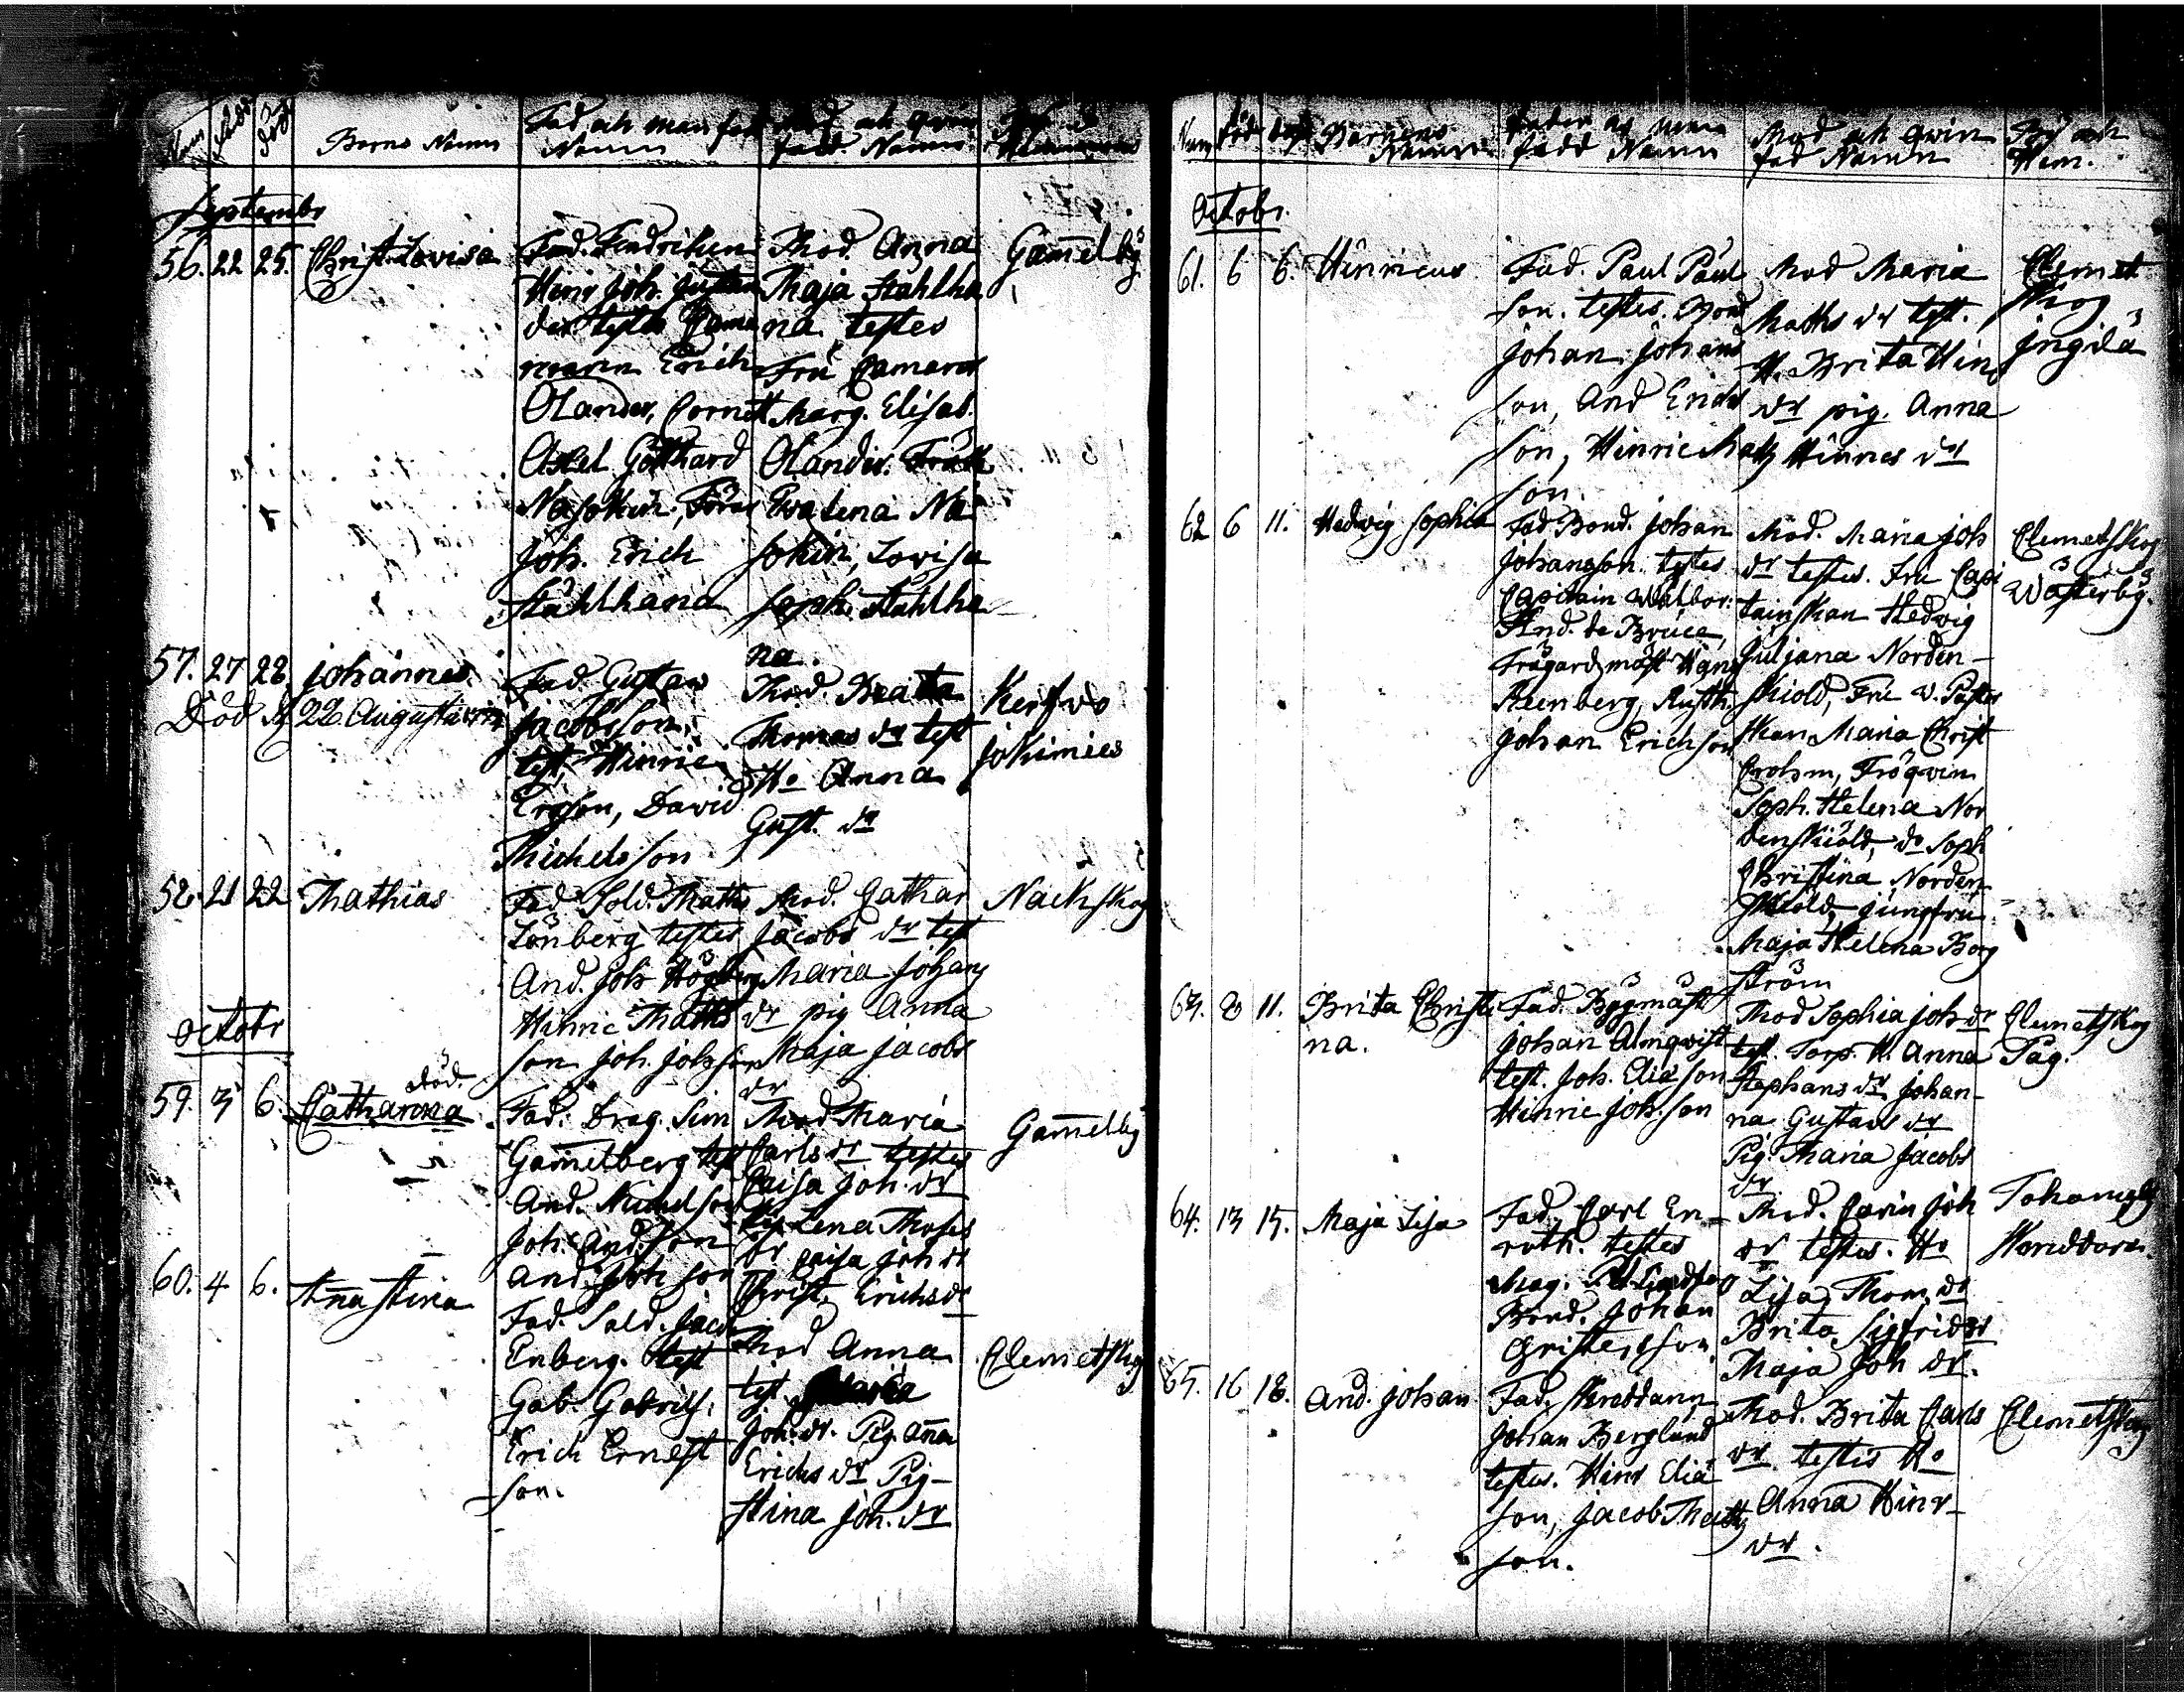 Num född döpt
Barns Namn
Fad och man fad
Namn
Mod och qwin
fadd. Namn
Septembr
56. 22 25. Christ. Lovisa
Fad. Fendriken
Hinr Joh.
testes
Erich
Olander, Cornett
Axel Gotthard
Nasokin,
Joh. Erich
Stahlhana
Mod. Anna
Maja Stahlha
na testes
Fru
Marg. Elisab.
Olander.
Eva Lena Na
sokin, Lovisa
Soph. Stahlha
na.
Gam̄elbÿ
57. 27 28 Johannes
Död d 22 Augusti
Fad. Gustav
Jacobsson,
test. Hinric
Ersson, David
Michelsson
Mod. Beata
Thomas dr test
Ho Anna
Gust. dr
Kerfvo
Jokimies
58. 21 22 Mathias
Fad. Sold. Maths
Lönberg testes
And. Joh Högberg
Hinric Maths
son Joh. Johsson
Mod. Cathar
Jacobs dr test
Maria Johans
dr pig Anna
Maja Jacobs
dr
Nackskog
Octobr
död.
59. 3 6. Catharina
Fad. Drag. Sim
Gam̄elberg test
And. Michelson
Joh. And.son
And. Joh son
Mod Maria
Carls dr testes
Caisa Joh. dr
Pig. Lena Moses
dr Caisa Joh dr
Christ. Erichsdr
Gam̄elbÿ
60. 4 6. An̄a Stina
Fad. Sold. Jacob
Enberg. test
Gab. Gabriels.
Erich Ernest
son.
Mod Anna
test. Maria
Joh. dr. Pig. an̄a
Erichs dr Pig-
Stina Joh. dr
Clemetskog
Num föd döp Barnens
Namn
Fader och man
fadd Namn
Mod och qwin
fad Namn
By och
Hem.
Octobr.
61. 6 6. Hinricus
Fad. Paul Paul
son. testes. Bond
Johan Johans
son, And Erichs
son, Hinric Mats
son.
Mod Maria
Maths dr test.
H. Brita Hinr
dr pig. Anna
Hinrics dr
Clemet
skog
Ingilä
62 6 11. Hedwig Sophia
Fad Bond. Johan
Johansson. testes
Capitain Walbor.
And. de Bruce,
Trägardzmäst Hans
Renberg, Rusth.
Johan Erichson
Mod. Maria Joh
dr testes. Fru Capi
tainskan Hedwig
Juliana Norden-
skiold, Fru v. Pastor
skan Maria Christ
Crohm, Fröqvin
Soph. Helena Nor
denskiöld, do Soph
Christina Norden
skiold, jungfru
Maja Helena Borg
ström
Clemetskog
Wästerbÿ.
63. 8 11. Brita Christi
na.
Fad. Bygmäst
Johan Almqvist
test. Joh. Elia son
Hinric Joh. son
Mod Sophia Joh dr
test. Torp. H. Anna
Stephans dr Johan-
na Gustavs dr
Pig. Maria Jacobs
dr
Clemetskog
Päg.
64. 13 15. Maja Lisa
Fad. Carl En-
roth. testes
Mag.
Bond. Johan
Christersson
Mod. Carin Joh
dr testes. Ho
Lisa Thom. dr
Brita Sigfridsdr
Maja Joh dr.
65. 16 18. And. Johan
Fad. Skreddarn
Johan Berglund
testes. Hinr Elia
son, Jacob Maths
son.
Mod. Brita Carls
dr testis Ho
Anna Hinr-
dr.
Clemetskog